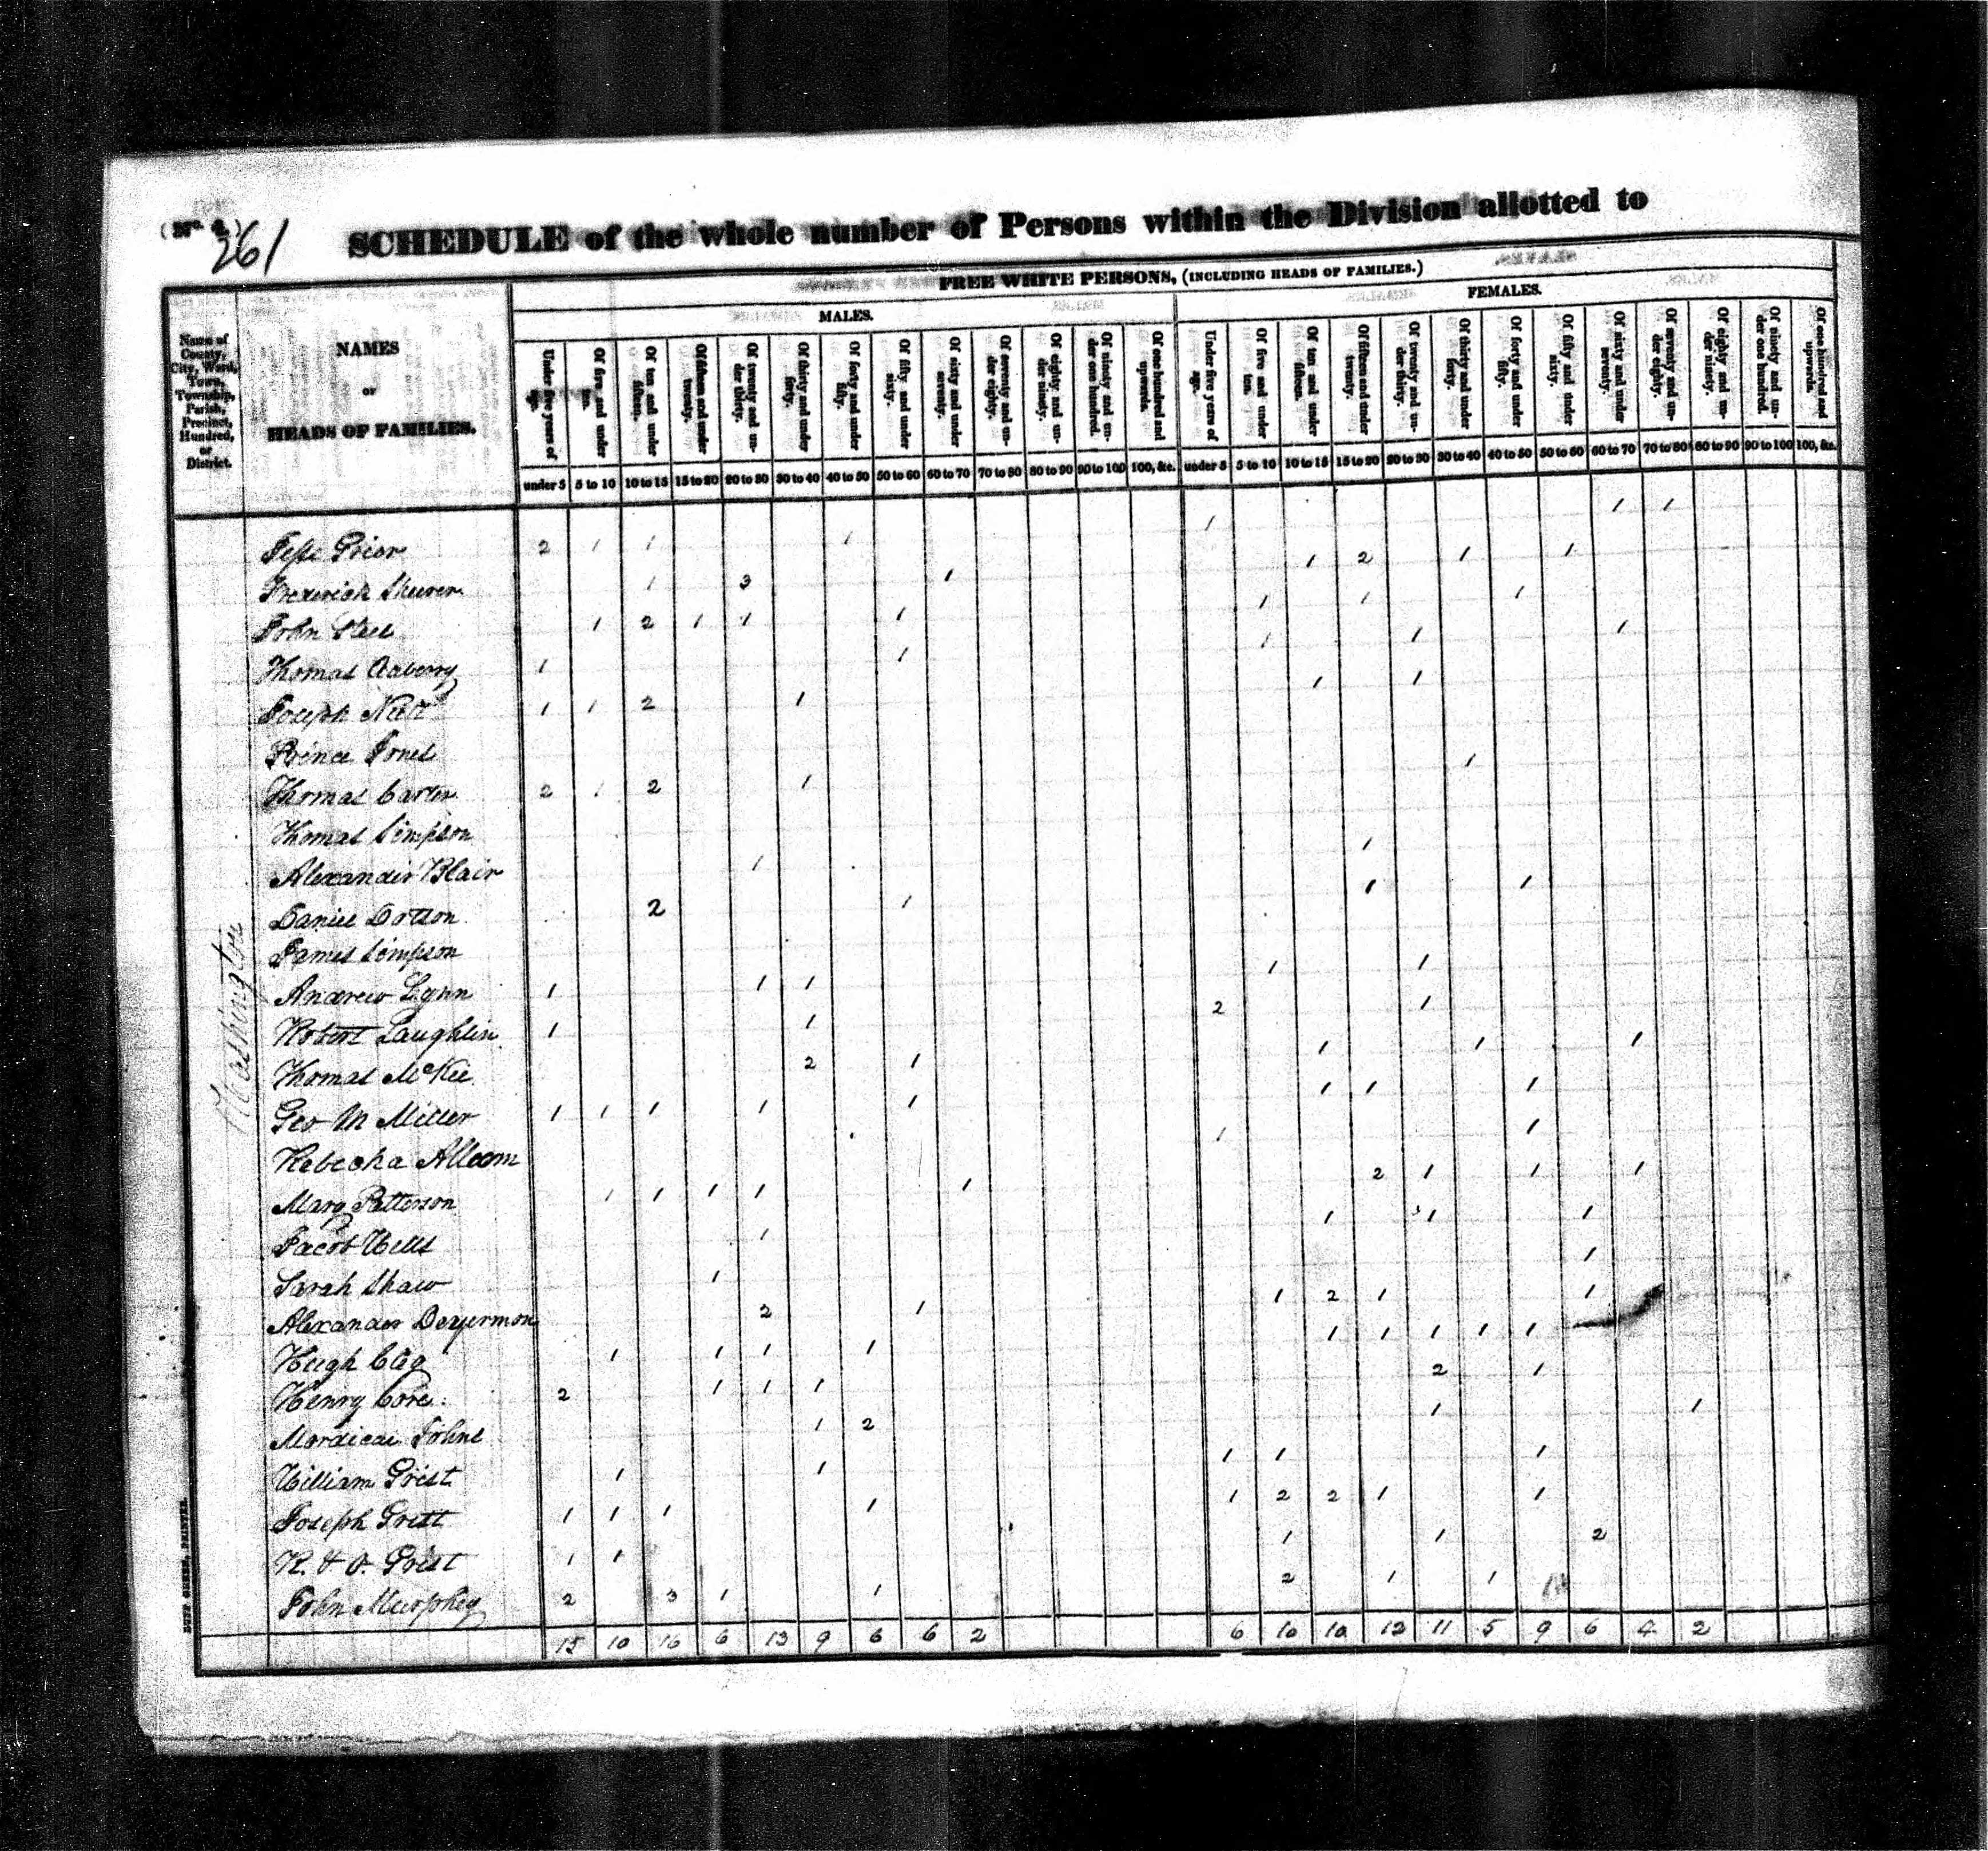 (No. 1.) 261 SCHEDULE of the whole number of Persons within the Division allotted to
FREE WHITE PERSONS, (INCLUDING HEADS OF FAMILIES.)
MALES. FEMALES.
Name of County, City, Ward, Town, Township, Parish, Precinct, Hundred, or District.
NAMES
or
HEADS OF FAMILIES.
Under five years of age. Of five and under ten. Of ten and under fifteen. Of fifteen and under twenty. Of twenty and under thirty. Of thirty and under forty. Of forty and under fifty. Of fifty and under sixty. Of sixty and under seventy. Of seventy and under eighty. Of eighty and under ninety. Of ninety and under one hundred. Of one hundred and upwards. Under five years of age. Of five and under ten. Of ten and under fifteen. Of fifteen and under twenty. Of twenty and under thirty. Of thirty and under forty. Of forty and under fifty. Of fifty and under sixty. Of sixty and under seventy. Of seventy and under eighty. Of eighty and under ninety. Of ninety and under one hundred. Of one hundred and upwards.
under 5 5 to 10 10 to 15 15 to 20 20 to 30 30 to 40 40 to 50 50 to 60 60 to 70 70 to 80 80 to 90 90 to 100 100, &c. under 5 5 to 10 10 to 15 15 to 20 20 to 30 30 to 40 40 to 50 50 to 60 60 to 70 70 to 80 80 to 90 90 to 100 100, &c.
Washington
Jesse Grier 2 1 1 1 1 1 1
Frederick 1 3 1 1 2 1 1
John Steel 1 2 1 1 1 1 1 1
Thomas 1 1 1 1 1
Joseph 1 1 2 1 1 1
Prince Jones
Thomas Carter 2 1 2 1 1
Thomas Simpson
Alexander Blair 1 1
Daniel Dotson 2 1 1 1
James Simpson
Andrew Lynn 1 1 1 1 1
Robert Laughlin 1 1 2 1
Thomas McKee 2 1 1 1 1
Geo M Miller 1 1 1 1 1 1 1 1
Rebecka 1 1
Mary Patterson 1 1 1 1 1 2 1 1 1
Jacob Wells 1 1 1 1
Sarah Shaw 1 1
Alexander Deyermon 2 1 1 2 1 1
Hugh 1 1 1 1 1 1 1 1 1
Henry Core 2 1 1 1 2 1
Mordicai Johns 1 2 1 1
William Grist 1 1 1 1 1
Joseph Grist 1 1 1 1 1 2 2 1 1
R. & O. Grist 1 1 1 1 2
John Murphey 2 3 1 1 2 1 1
15 10 16 6 13 9 6 6 2 6 10 10 12 11 5 9 6 4 2
DUFF GREEN, PRINTER.